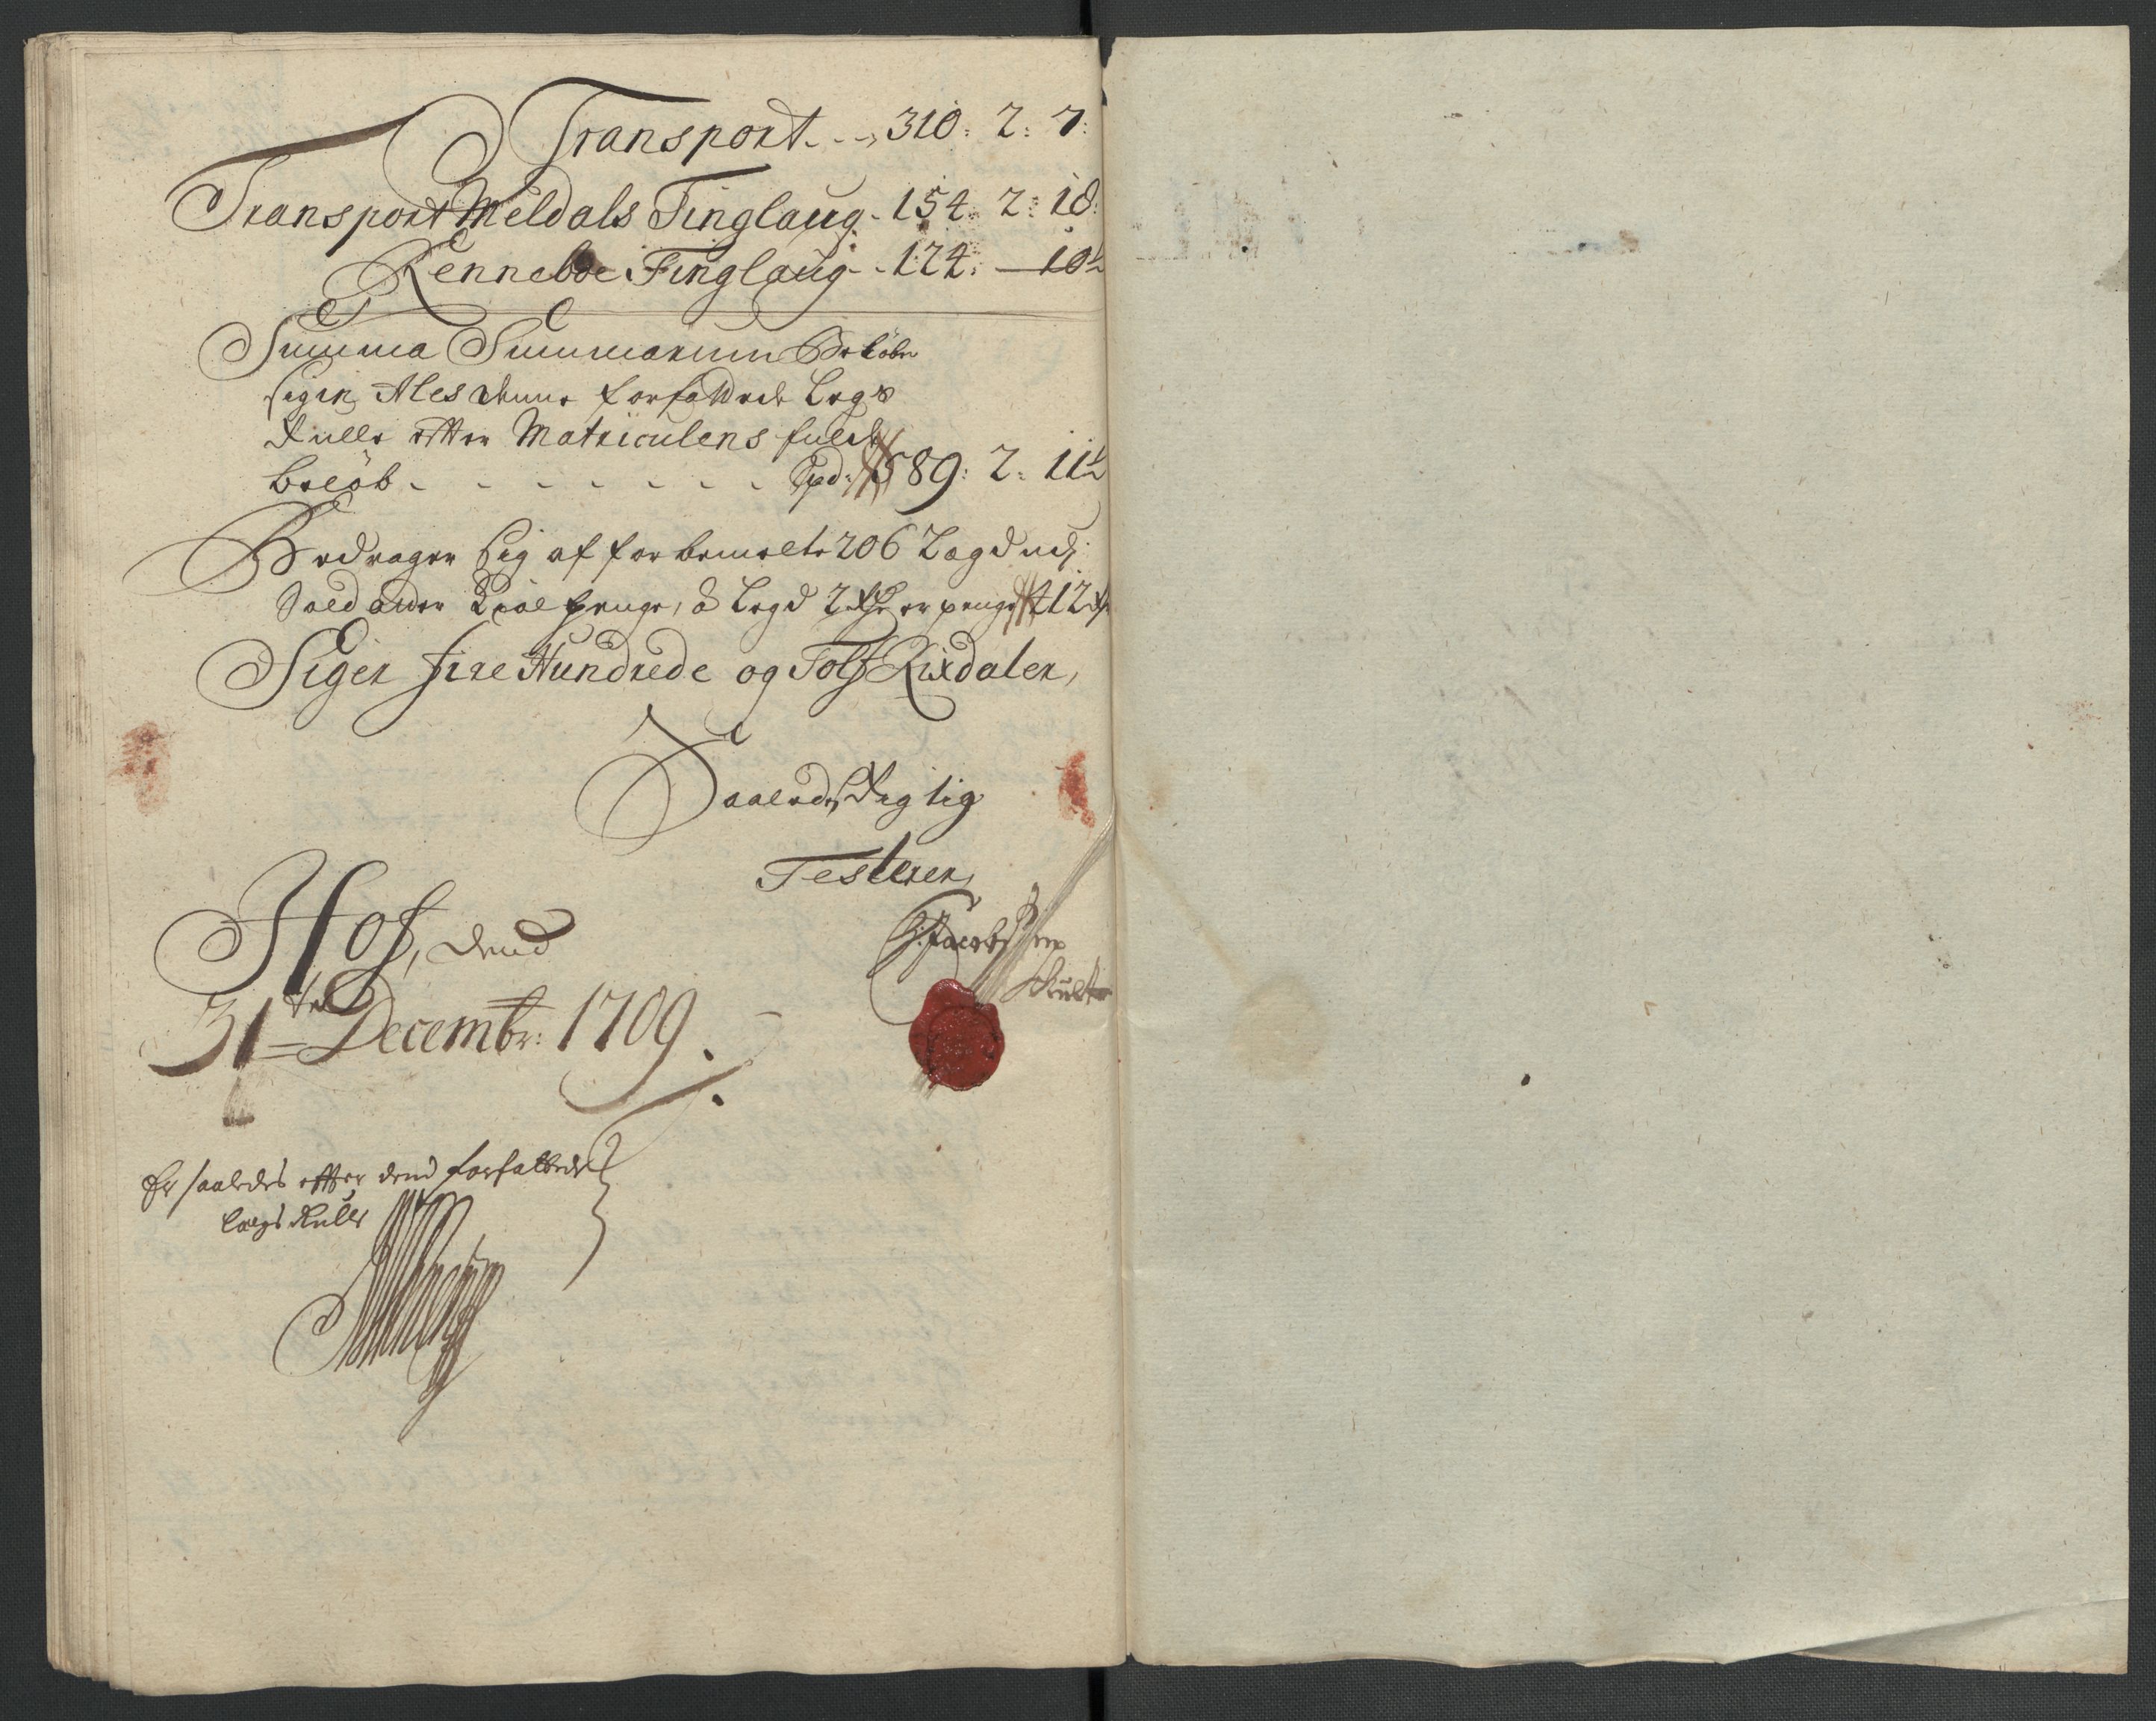 Transport. - - 310: 2: 7:
Transport Meldals Tinglaug - 154: 2: 18:
Renneboe Tinglaug - - 124: — 10½
Summa Summarum Beløber
sigen Ales denne forfattede Legs
Rulle efter Matriculens fulde
beløb - - - - - - - Spd: 589: 2: 11½
Bedrager sig af forbemelte 206 Lægd udj
Soldater penge, â Legd 2 er penge 412
Siger fire Hundrede og Tolf Rixdaler,
Saaledes Rigtig
Testerer
Hof, dend
31te Decembr: 1709.
Er saaledes efter dend forfattede
Legs Rulle